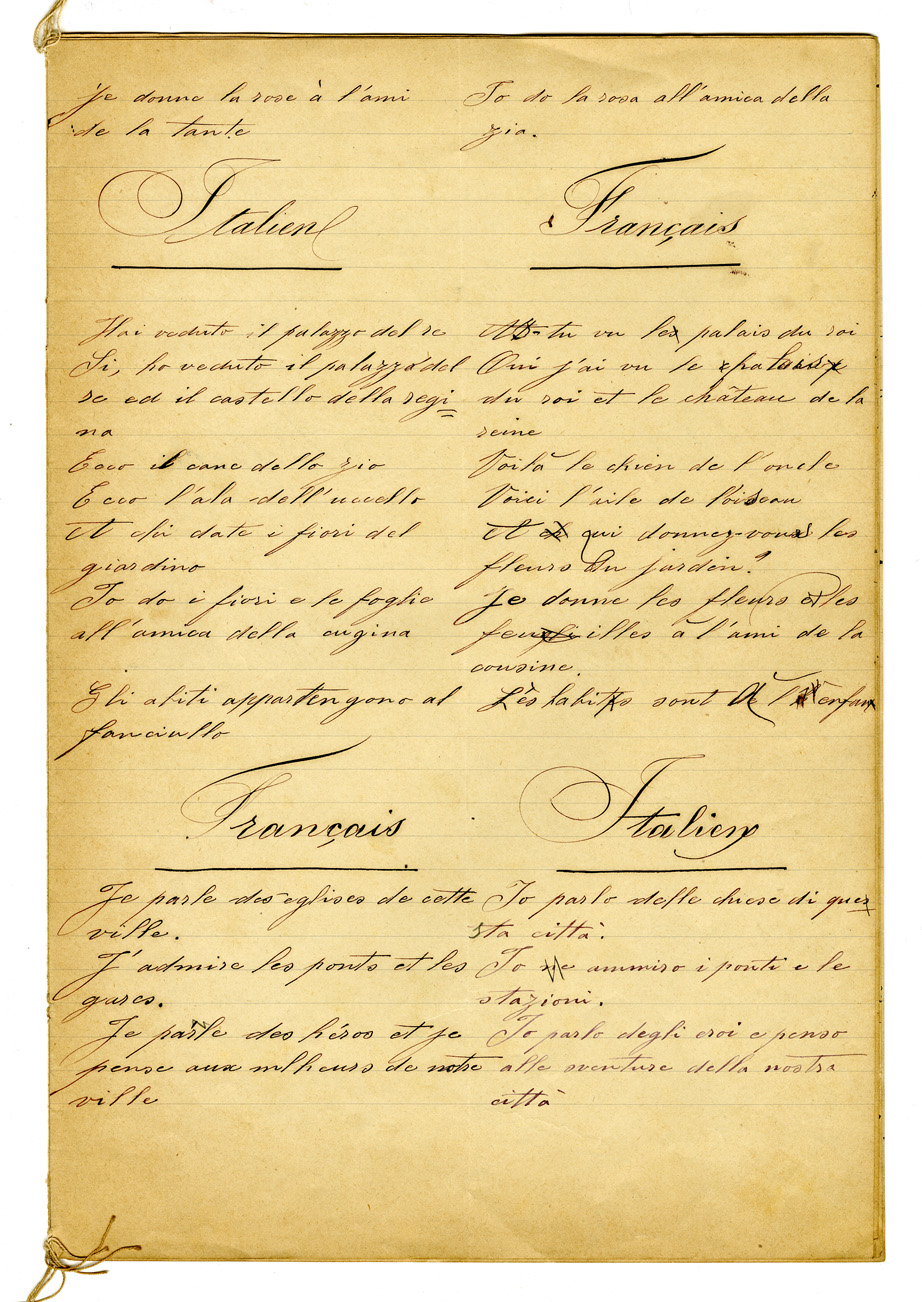 Je donne la rose à l'ami
de la tante
Io do la rosa all'amica della
zia.
Italien
Français
Hai veduto il palazzo del re
Si, ho veduto il palazzo del
re ed il castello della regi=
na
Ecco il cane dello zio
Ecco l'ala dell'uccello
A chi date i fiori del
giardino
Io do i fiori e le foglie
all'amica della cugina
Gli abiti appartengono al
fanciullo
As-tu vu le palais du roi
Oui j'ai vu le palais
du roi et le château de la
reine
Voilà le chien de l'oncle
Voici l'aile de l'oiseau
A qui donnez-vous les
fleurs du jardin?
Je donne les fleurs et les
feuilles à l'ami de la
cousine.
Les habits sont à l'enfan
Français
Italien
Je parle des eglises de cette
ville.
J'admire les ponts et les
gares.
Je parle des héros et je
pense aux mlheurs de notre
ville
Io parlo delle chiese di que=
sta città.
Io ammiro i ponti e le
stazioni.
Io parlo degli eroi e penso
alle sventure della nostra
città